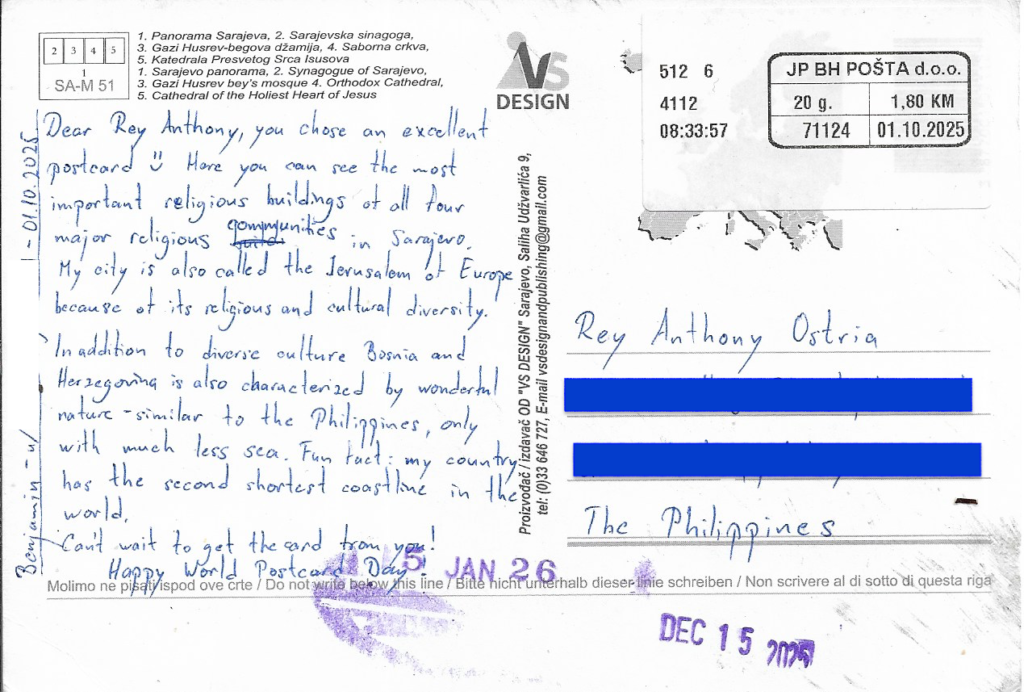 2 3 4 5
1
SA-M 51
1. Panorama Sarajeva, 2. Sarajevska sinagoga,
3. Gazi Husrev-begova džamija, 4. Saborna crkva,
5. Katedrala Presvetog Srca Isusova
1. Sarajevo panorama, 2. Synagogue of Sarajevo,
3. Gazi Husrev bey's mosque 4. Orthodox Cathedral,
5. Cathedral of the Holiest Heart of Jesus
AVS
DESIGN
512 6
4112
08:33:57
JP BH POŠTA d.o.o.
20 g. 1,80 KM
71124 01.10.2025
Dear Rey Anthony, you chose an excellent
postcard Here you can see the most
important religious buildings of all four
major religious communities in Sarajevo.
My city is also called the Jerusalem of Europe
because of its religious and cultural diversity.
In addition to diverse culture Bosnia and
Herzegovina is also characterized by wonderful
nature - similar to the Philippines, only
with much less sea. Fun fact: my country
has the second shortest coastline in the
world.
Can't wait to get the card from you!
Happy World Postcard Day!
Benjamin
01.10.2025
Proizvođač / izdavač OD "VS DESIGN" Sarajevo, Saliha Udžvarlića 9,
tel: (0)33 646 727, E-mail vsdesignandpublishing@gmail.com
Rey Anthony Ostria
The Philippines
5 JAN 26
Molimo ne pisati ispod ove crte / Do not write below this line / Bitte nicht unterhalb dieser linie schreiben / Non scrivere al di sotto di questa riga
DEC 15 2025